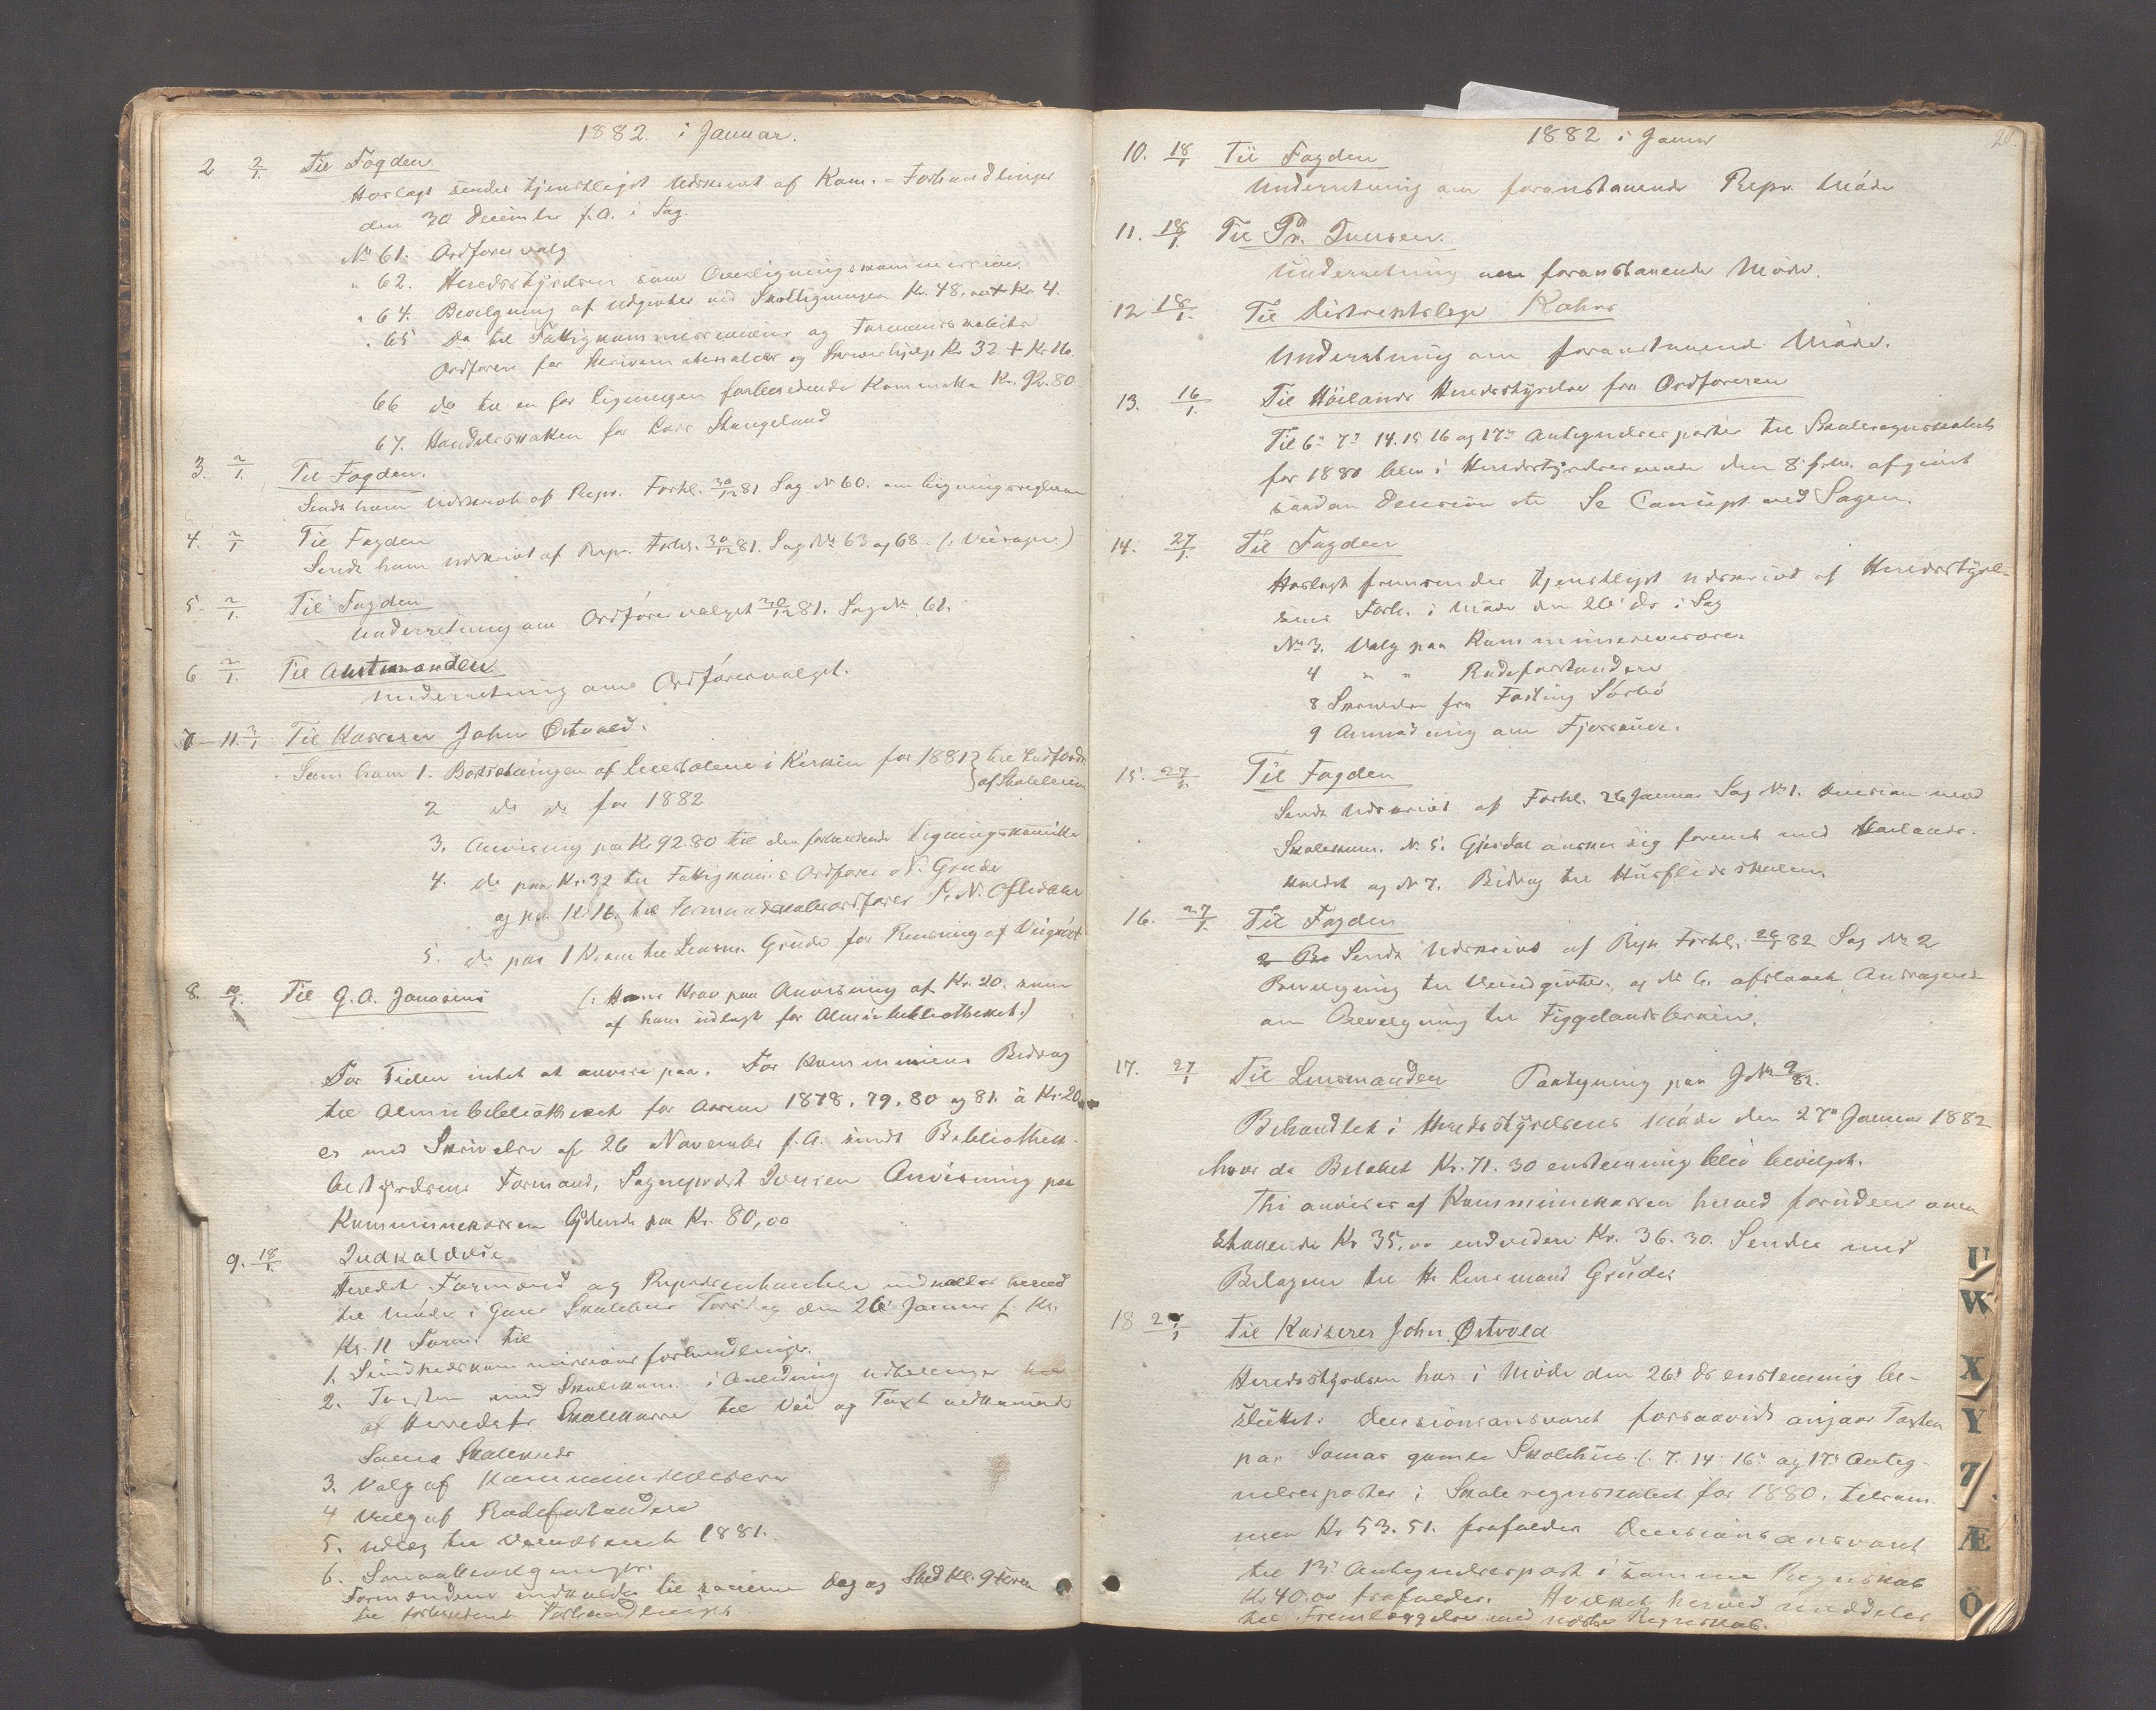 1882. i Januar.
2 2/1. Til Fogden
Hoslagt sendes tjenstligst Udskrivt af Kom.-Forhandlinger
den 30 December f.A. i Sag.
No 61. Ordførervalg
" 62. Heredsstyrelsen som Overligningskommission.
" 64. Bevilgning af Udgivter ved Skatligningen Kr. 48, + Kr. 4.
" 65 Do til Fattigkommissionens og Formandskabets
Ordførere for Skrivematerialier og Skriverhjelp Kr 32 + Kr 16.
66 do til en for Ligningen forberedende Kommitte Kr. 92.80
67. Handelssaken for Lars Stangeland
3. 2/1. Til Fogden.
Sendt ham Udskrivt af Repr. Forhl. 30/12 81 Sag No 60. om Ligningsreglerne
4. 2/1 Til Fogden
Sendt ham Udskrivt af Repr. Forhl. 30/12 81. Sag No 63 og 68. (: Veisager.)
5. 2/1. Til Fogden
Underretning om Ordførervalget 30/12 81. Sag No 61.
6 2/1. Til Amtmanden
Underretning om Ordførervalget.
7-11. 3/1 Til Kasserer John Østvold.
Sendt ham 1. Bortsætningen af Leiestolene i Kirken for 1881 } til Indfordr.
af Stoleleien
2 do do for 1882
3. Anvisning paa Kr 92.80 til den forberedende Ligningskomitte
4. do paa Kr. 32 til Fattigkoms Ordfører N. Grude
og paa Kr 16. til Formandskabsordfører S. N. Oftedal
5. do paa 1 Krone til Lensm. Grude for Rensning af Veigrøft
8. 10/1. Til G. A. Jonasens (: Hans Krav paa Anvisning af Kr. 20. som
af ham udlagt for Almuebibliotheket.)
For Tiden intet at anvise paa. For Kommunens Bidrag
til Almuebibliotheket for Aarene 1878. 79. 80 og 81. à Kr. 20
er med Skrivelse af 26 November f.A. sendt Bibliothek-
bestyrelsens Formand, Sognepræst Iversen Anvisning paa
Kommunekassen lydende paa Kr. 80,00
9. 18/1. Indkaldelse
Heredets Formænd og Repræsentanter indkaldes herved
til Møde i Gans Skolehus Torsdag den 26 Januar f. Kr.
Kl. 11 Form. til
1. Sundhedskommissions forhandlinger.
2. Tvisten med Skolekom. i Anledning Udbetalinger
af Herredets Skolekasse til Vei og Taxt vedkommende
Soma Skolekreds
3. Valg af Kommunerevisorer
4 Valg af Rodeforstandere
5. Udlæg til 1881.
6. Smaabevilgninger.
Formændene indkaldes til samme Dag og Sted Kl. 9 Form
til forberedende Forhandlinger
1882 i Januar
10. 18/1 Til Fogden
Underretning om foranstaaende Repr. Møde
11. 18/1. Til Pr. Iversen.
Underretning om foranstaaende Møde.
12 18/1. Til Distriktslæge Kahrs
Underretning om foranstaaende Møde.
13. 16/1. Til Høilands Heredsstyrelse fra Ordføreren
Til 6te 7de 14. 15 16 og 17de Antegnelsesposter til Skoleregnskabet
for 1880 blev i Heredsstyrelsesmøde den 8 f.M. afgivet
saadan Decision etc Se Concept ved Sagen.
14. 27/1. Til Fogden
Hoslagt fremsendes tjenstligst Udskrivt af Heredsstyrel-
sens Forh. i Møde den 26 ds i Sag
No 3. Valg paa Kommunerevisorer
4 " " Rodeforstandere
8 Skrivelse fra Fasting Sørbø
9 Anmodning om
15. 27/1. Til Fogden
Sendt Udskrivt af Forhl. 26 Januar Sag No 1. Decision mod
Skolekom. No 5. Gjesdal ønsker sig forenet med Høilands-
kaldet og No 7. Bidrag til Husflidsskolen
16. 27/1. Til Fogden
Sendt Udskrivt af Repr Forhl. 26/1 82 Sag No 2
Bevilgning til Veiudgivter, og No 6. afslaaet Andragende
om Bevilgning til Figgelandsbroen.
17. 27/1 Til Lensmanden Paategning paa J.No 9/82.
Behandlet i Heredsstyrelsens Møde den 27de Januar 1882
hvor da Beløbet Kr. 71. 30 enstemmig blev bevilget.
Thi anvises af Kommunekassen herved foruden oven
staaende Kr 35,00 endvidere Kr. 36. 30. Sendes med
Bilagene til Hr Lensmand Grude
18 27/1 Til Kasserer John Østvold
Heredsstyrelsen har i Møde den 26de ds enstemmig be-
sluttet: Decisionsansvaret forsaavidt angaar Taxten
paa Somas gamle Skolehus (: 7. 14. 16de og 17de Anteg-
nelsesposter i Skoleregnskabet for 1880. tilsam-
men Kr 53. 51. frafaldes Decisionsansvaret
til 13de Antegnelsespost i samme Regnskab
Kr 40,00 frafaldes. Hvilket herved meddeles
til Fremlæggelse ved næste Regnskab.
U
W
X
Y
Z
Æ
Ö